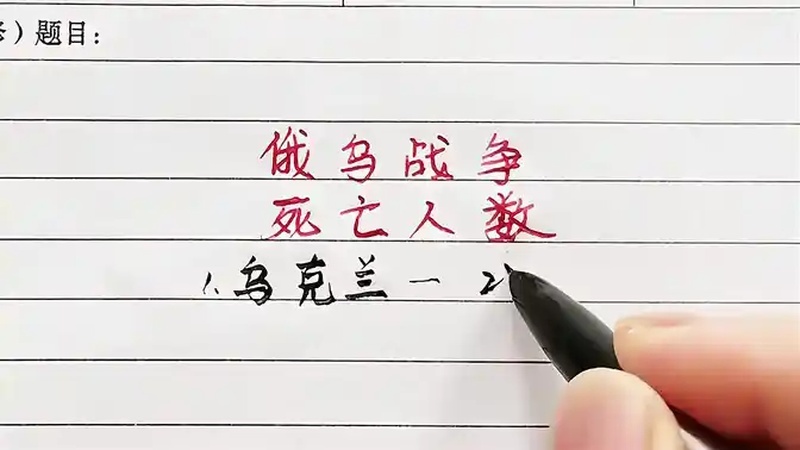 ）题目：
俄乌战争
死亡人数
1.乌克兰－2